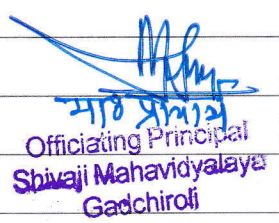 Officiating Principal
Shivaji Mahavidyalaya
Gadchiroli